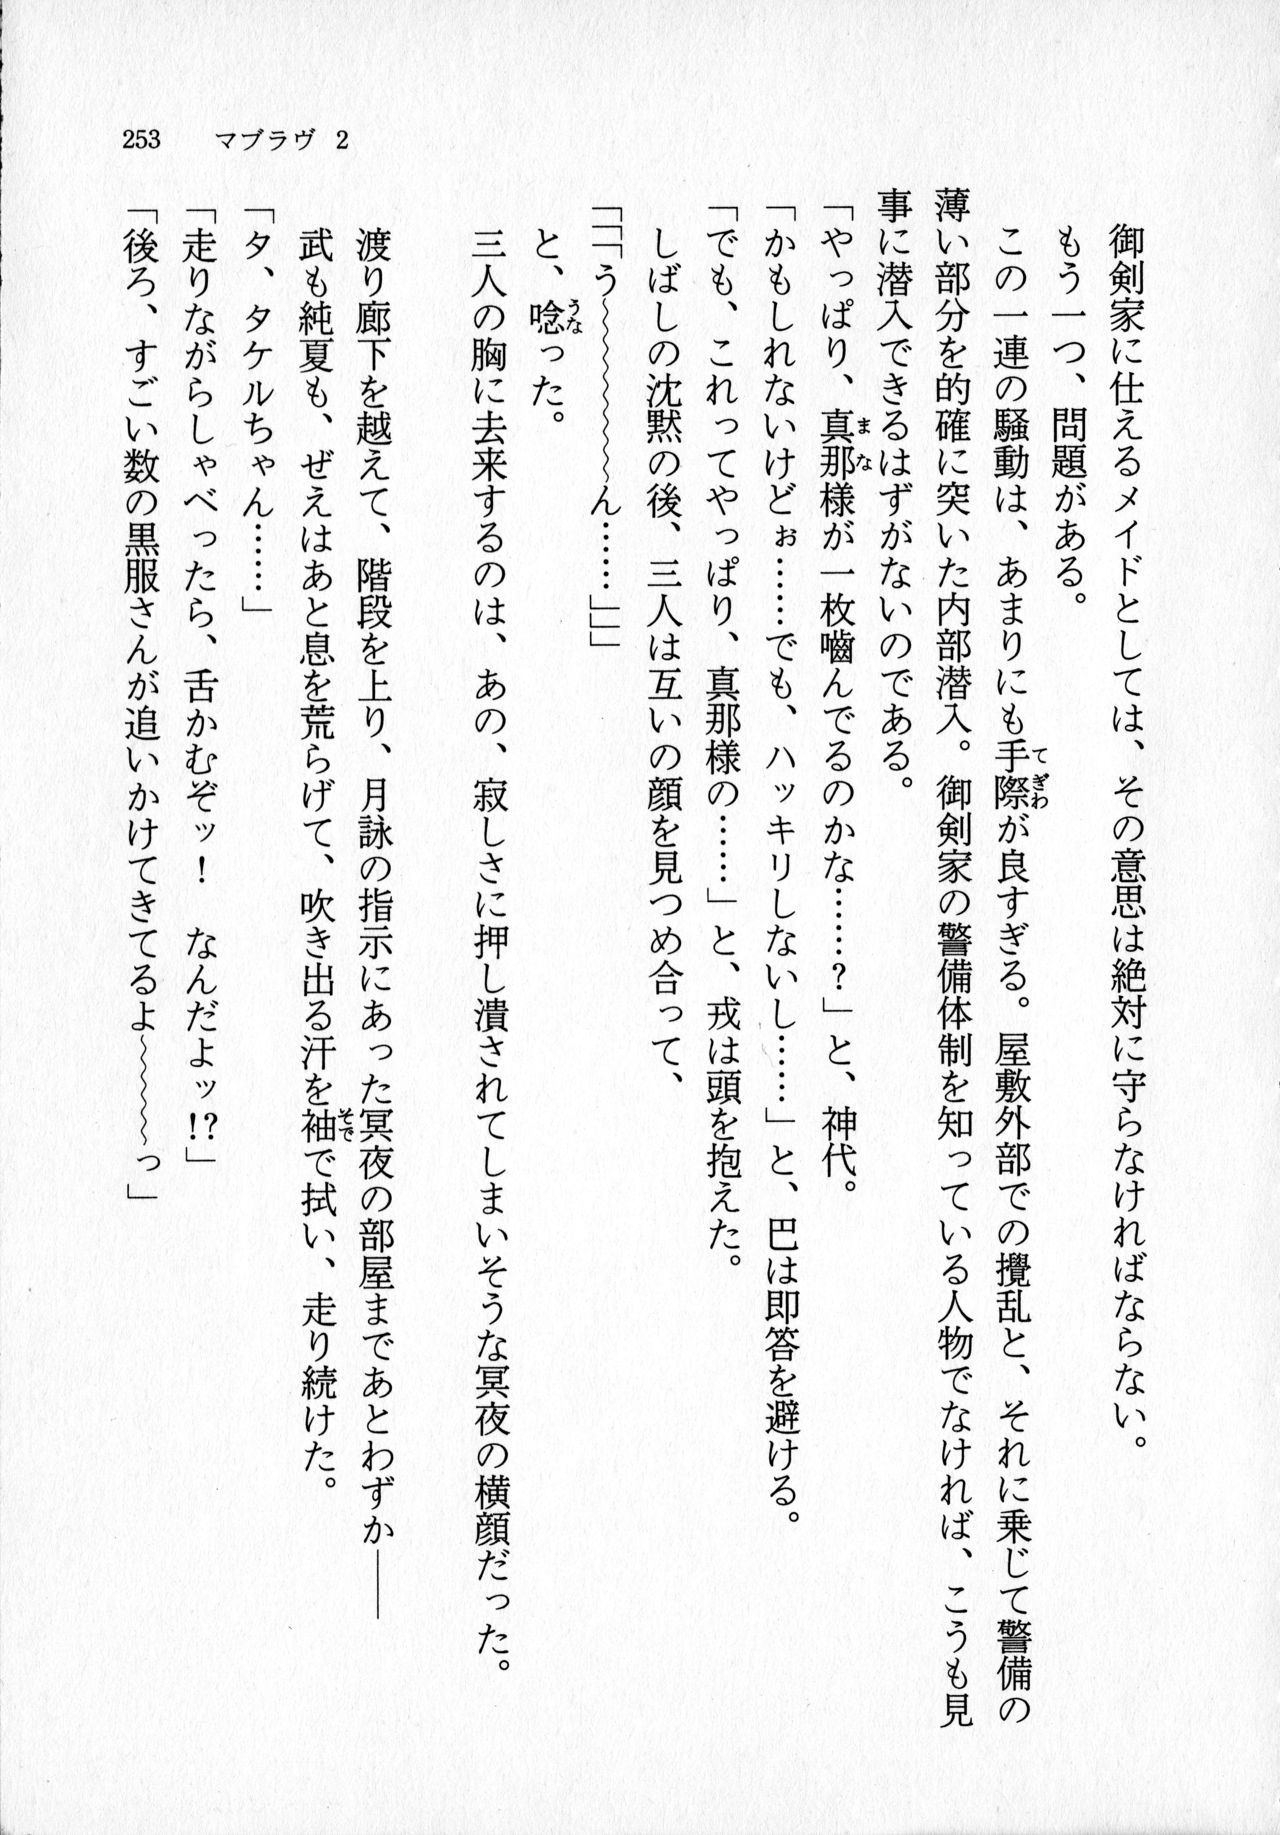 253　マブラヴ 2
　御剣家に仕えるメイドとしては、その意思は絶対に守らなければならない。
　もう一つ、問題がある。
　この一連の騒動は、あまりにも手際が良すぎる。屋敷外部での攪乱と、それに乗じて警備の
薄い部分を的確に突いた内部潜入。御剣家の警備体制を知っている人物でなければ、こうも見
事に潜入できるはずがないのである。
「やっぱり、真那様が一枚嚙んでるのかな……？」と、神代。
「かもしれないけどぉ……でも、ハッキリしないし……」と、巴は即答を避ける。
「でも、これってやっぱり、真那様の……」と、戎は頭を抱えた。
　しばしの沈黙の後、三人は互いの顔を見つめ合って、
「「「う～～～～～～ん……」」」
　と、唸った。
　三人の胸に去来するのは、あの、寂しさに押し潰されてしまいそうな冥夜の横顔だった。
　渡り廊下を越えて、階段を上り、月詠の指示にあった冥夜の部屋まであとわずか――
　武も純夏も、ぜえはあと息を荒らげて、吹き出る汗を袖で拭い、走り続けた。
「タ、タケルちゃん……」
「走りながらしゃべったら、舌かむぞッ！　なんだよッ!?」
「後ろ、すごい数の黒服さんが追いかけてきてるよ～～～～っ」